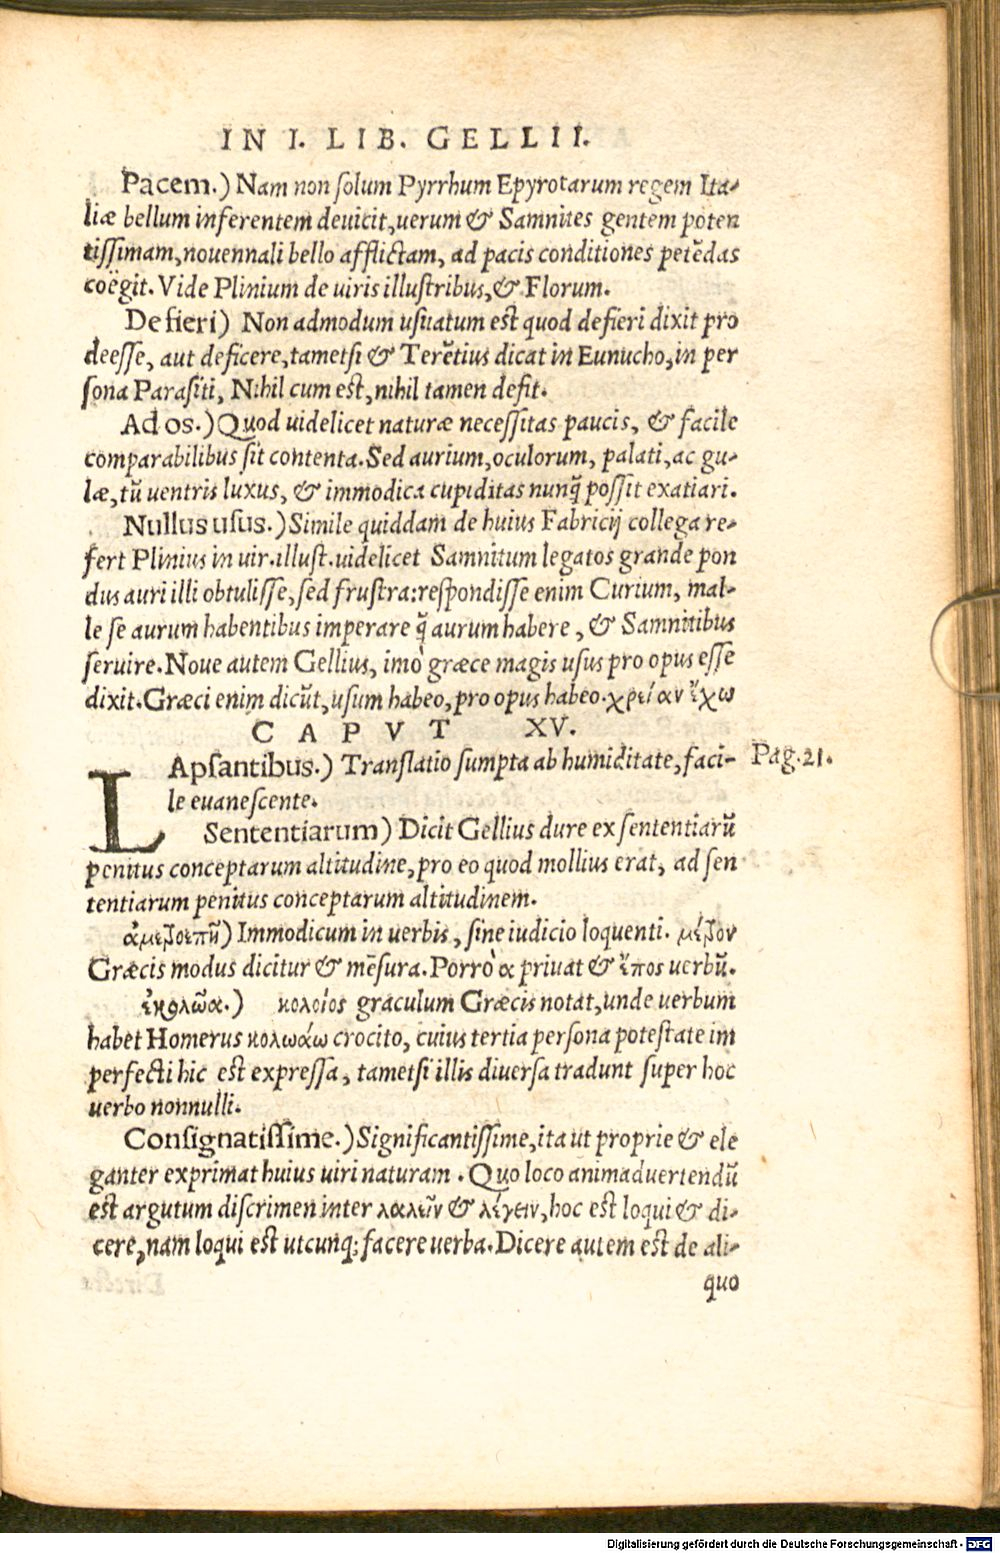 IN I. LIB. GELLII.
Pacem.) Nam non solum Pyrrhum Epyrotarum regem Ita-
liæ bellum inferentem deuicit, uerum & Samnites gentem poten
tissimam, nouennali bello afflictam, ad pacis conditiones petēdas
coëgit. Vide Plinium de uiris illustribus, & Florum.
Defieri) Non admodum usuatum est quod defieri dixit pro
deesse, aut deficere, tametsi & Terētius dicat in Eunucho, in per
sona Parasiti, Nihil cum est, nihil tamen defit.
Ad os.) Quod uidelicet naturæ necessitas paucis, & facile
comparabilibus sit contenta. Sed aurium, oculorum, palati, ac gu-
læ, tū uentris luxus, & immodica cupiditas nunq̄ possit exatiari.
Nullus usus.) Simile quiddam de huius Fabricij collega re-
fert Plinius in uir. illust. uidelicet Samnitum legatos grande pon
dus auri illi obtulisse, sed frustra: respondisse enim Curium, mal-
le se aurum habentibus imperare q̄ aurum habere, & Samnitibus
seruire. Noue autem Gellius, imò græce magis usus pro opus esse
dixit. Græci enim dicūt, usum habeo, pro opus habeo. χρείαν ἔχω
CAPVT XV.
LApsantibus.) Translatio sumpta ab humiditate, faci- Pag. 21.
le euanescente.
Sententiarum) Dicit Gellius dure ex sententiarū
penitus conceptarum altitudine, pro eo quod mollius erat, ad sen
tentiarum penitus conceptarum altitudinem.
ἀμετροεπῆ) Immodicum in uerbis, sine iudicio loquenti. μέτρον
Græcis modus dicitur & mēsura. Porrò α priuat & ἔπος uerbū.
ἐκολῶα.) κολοιός graculum Græcis notat, unde uerbum
habet Homerus κολωάω crocito, cuius tertia persona potestate im
perfecti hic est expressa, tametsi illis diuersa tradunt super hoc
uerbo nonnulli.
Consignatissime.) Significantissime, ita ut proprie & ele
ganter exprimat huius uiri naturam. Quo loco animaduertendū
est argutum discrimen inter λαλεῖν & λέγειν, hoc est loqui & di-
cere, nam loqui est utcunq; facere uerba. Dicere autem est de ali-
quo
Digitalisierung gefördert durch die Deutsche Forschungsgemeinschaft - DFG